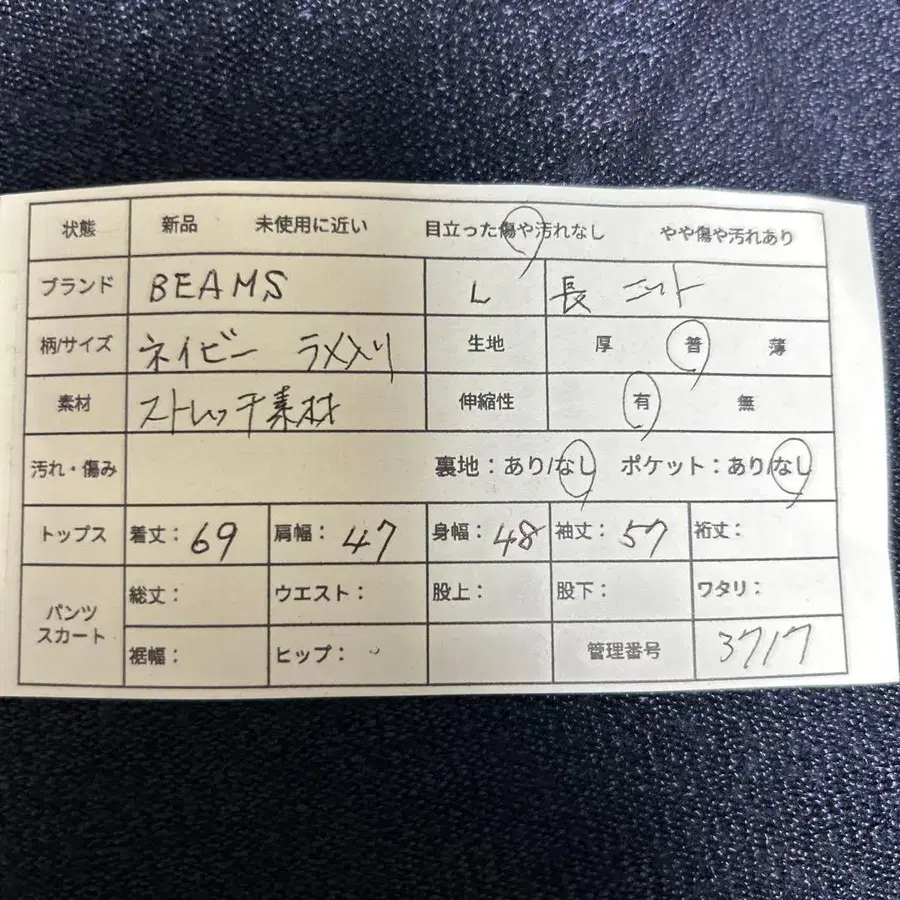 状態 新品 未使用に近い 目立った傷や汚れなし やや傷や汚れあり
ブランド BEAMS L 長 ニット
柄/サイズ ネイビー ラメ入り 生地 厚 普 薄
素材 ストレッチ素材 伸縮性 有 無
汚れ・傷み 裏地：あり/なし ポケット：あり/なし
トップス 着丈：69 肩幅：47 身幅：48 袖丈：57 裄丈：
パンツ スカート 総丈： ウエスト： 股上： 股下： ワタリ：
裾幅： ヒップ： 管理番号 3717